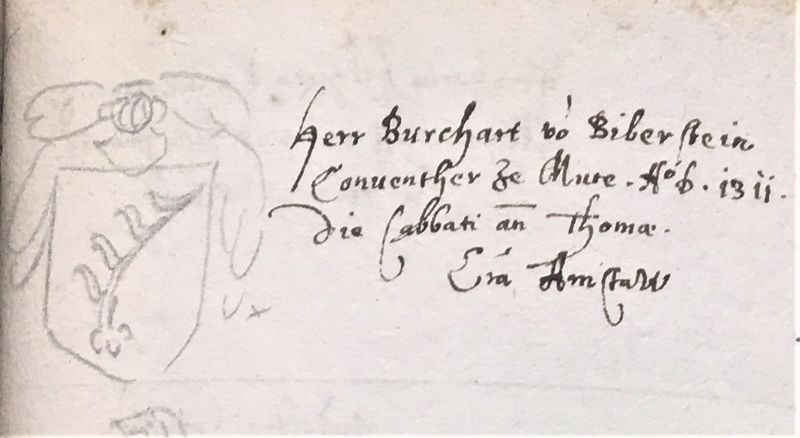 Herr Burchart vō Biberstein
Conventher ze Mure. Aō b. 1311.
Die Sabbati an̄ Thomæ.